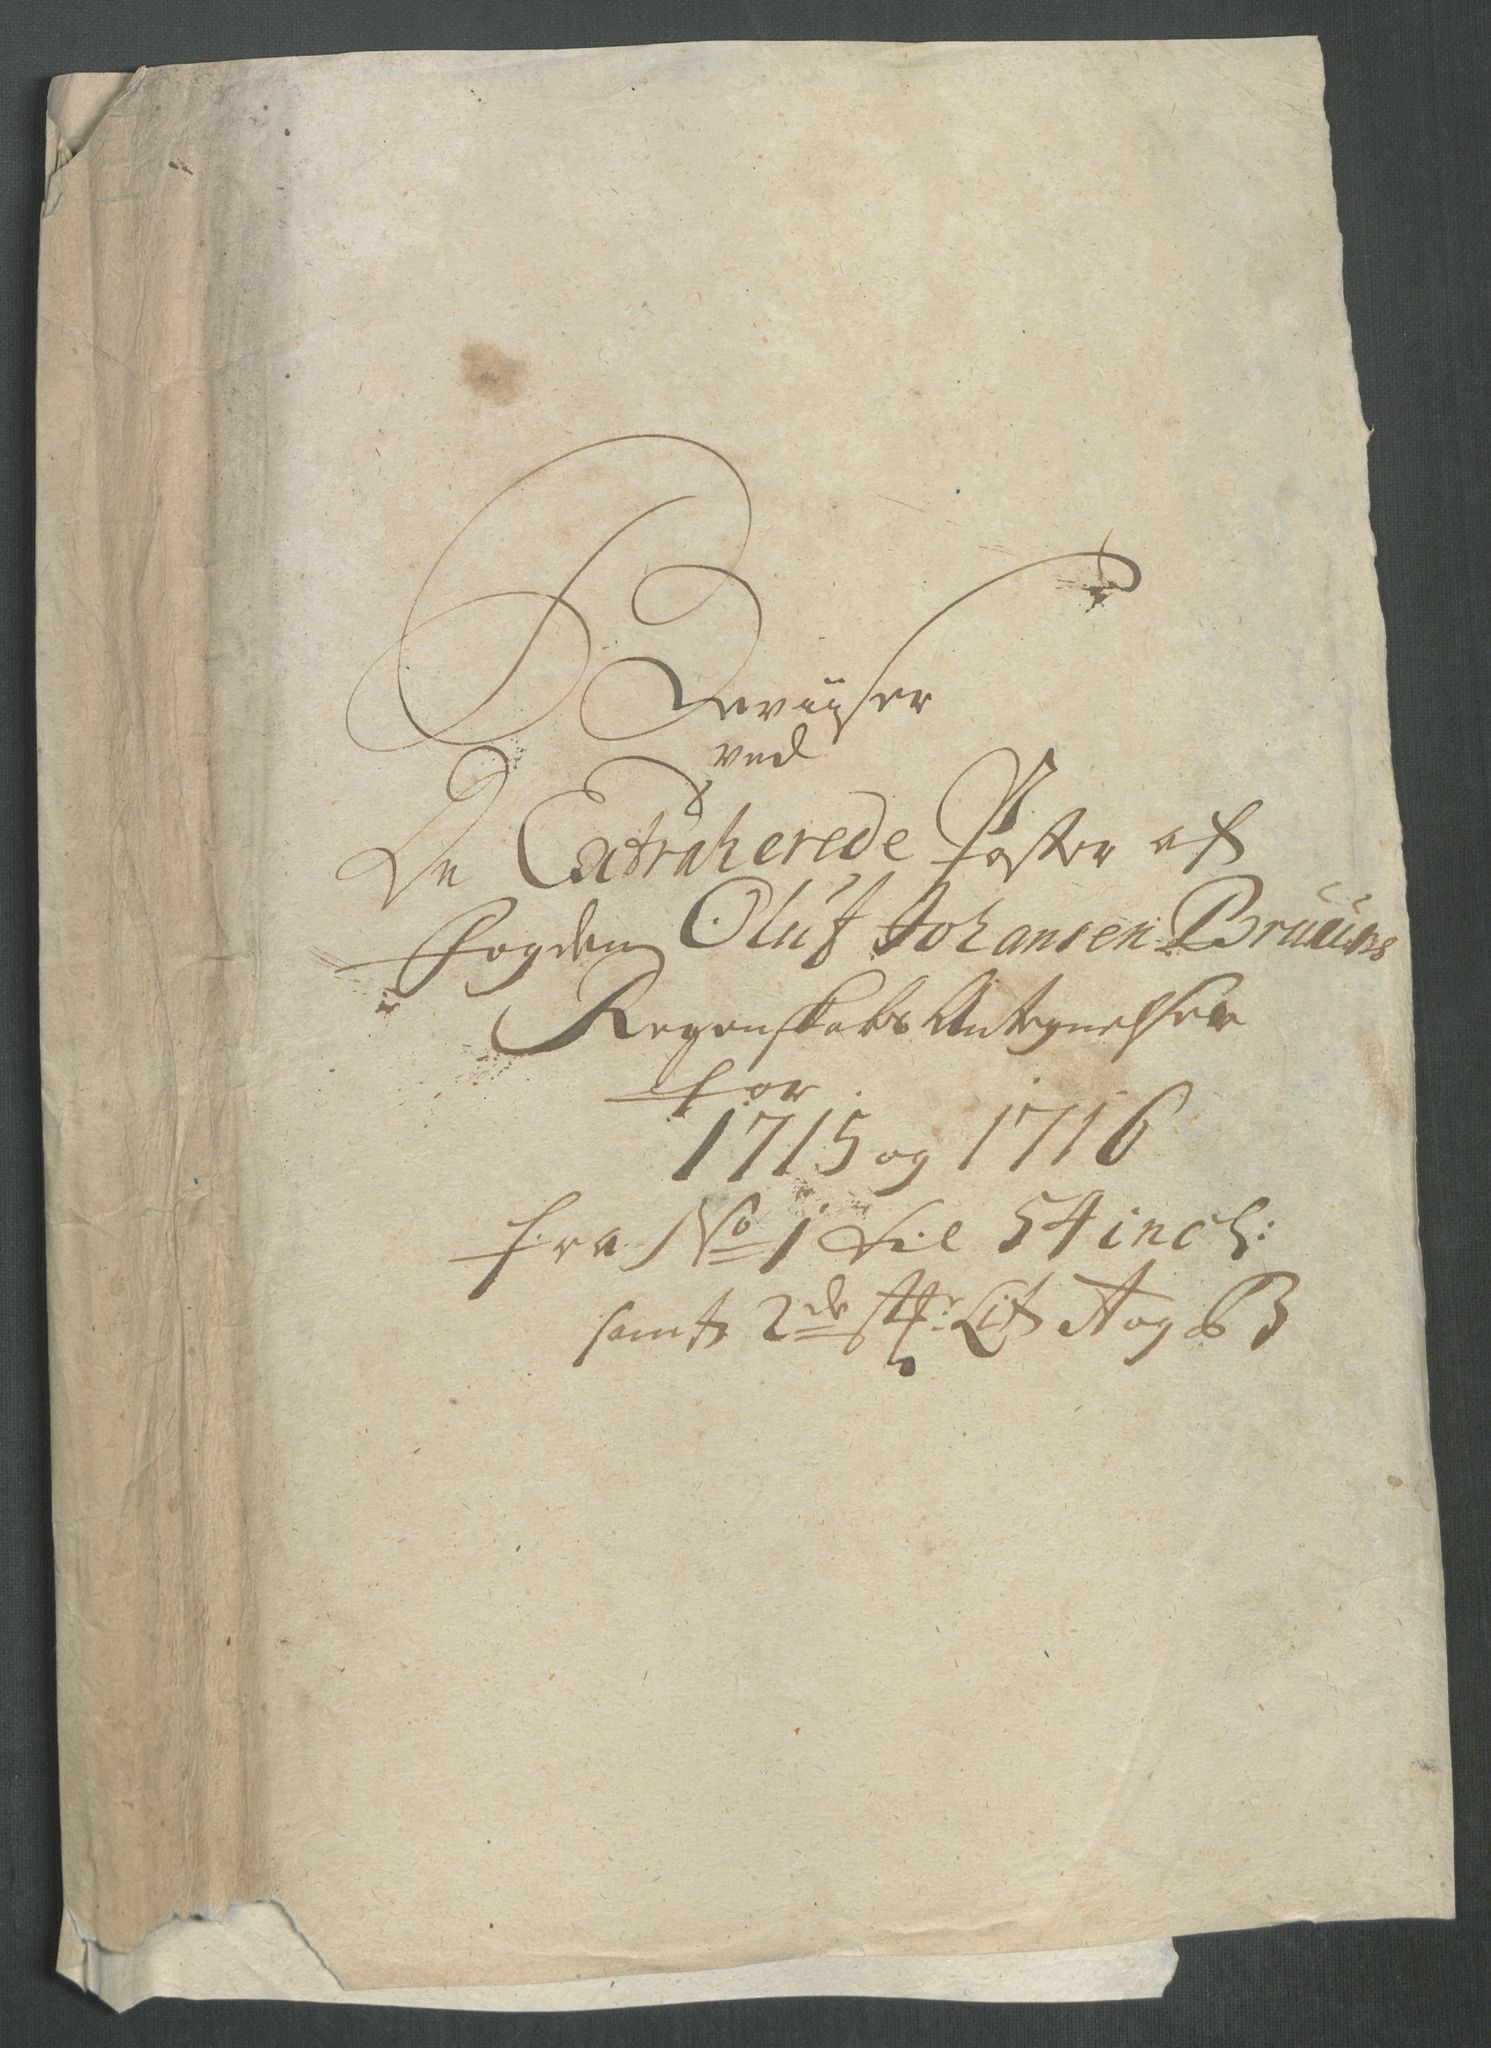 Beviiser
ved
De Extraherede Poster af
Fogden Oluf Johansen Bruuns
Regenskabs Antegnelser
for
1715 og 1716
fra No 1 til 54 incl:
samt 2de st: Lit A og B